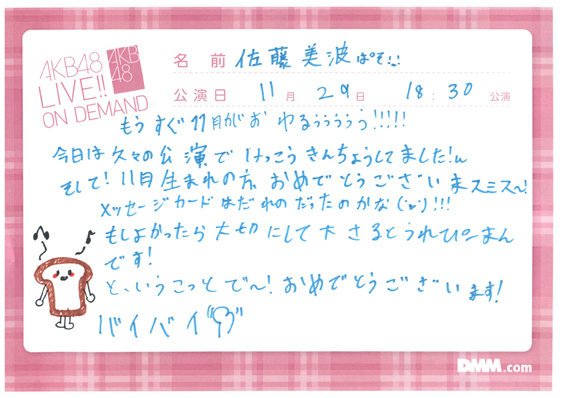 AKB48
LIVE!!
ON DEMAND
AKB
48
名 前 佐藤美波ぱそ!!
公演日 11月 29日 18:30 公演
もうすぐ11月がおわるぅぅぅぅぅ!!!!!
今日は久々の公演でけっこうきんちょうしてました!
そして!11月生まれの方おめでとうございまスミス〜!
メッセージカードはだれのだったのかな!!!
もしよかったら大切にして下さるとうれぴーまん
です!
と、いうこっとで〜!おめでとうございます!
バイバイ
DMM.com